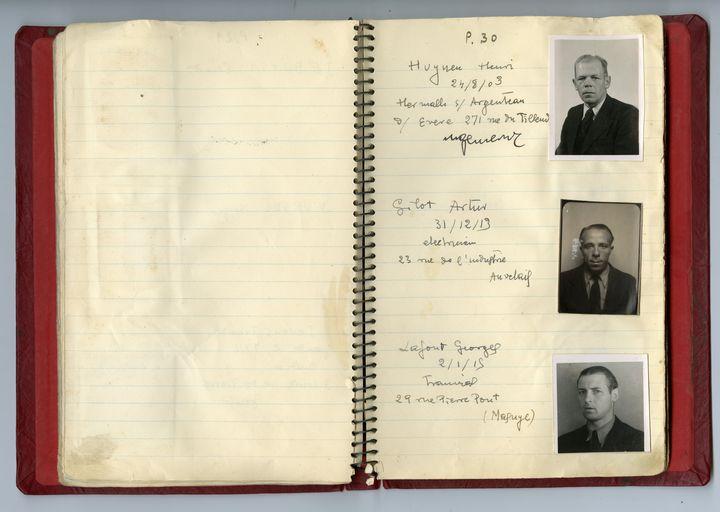 P. 30
Huynen Henri
24/8/03
Hermalle s/ Argenteau
D/ Evere 271 rue du Tilleul
Gilot Artur
31/12/19
electricien
23 rue de l'industrie
Auvelais
Lafont Georges
2/1/15
29 rue Pierre Pont